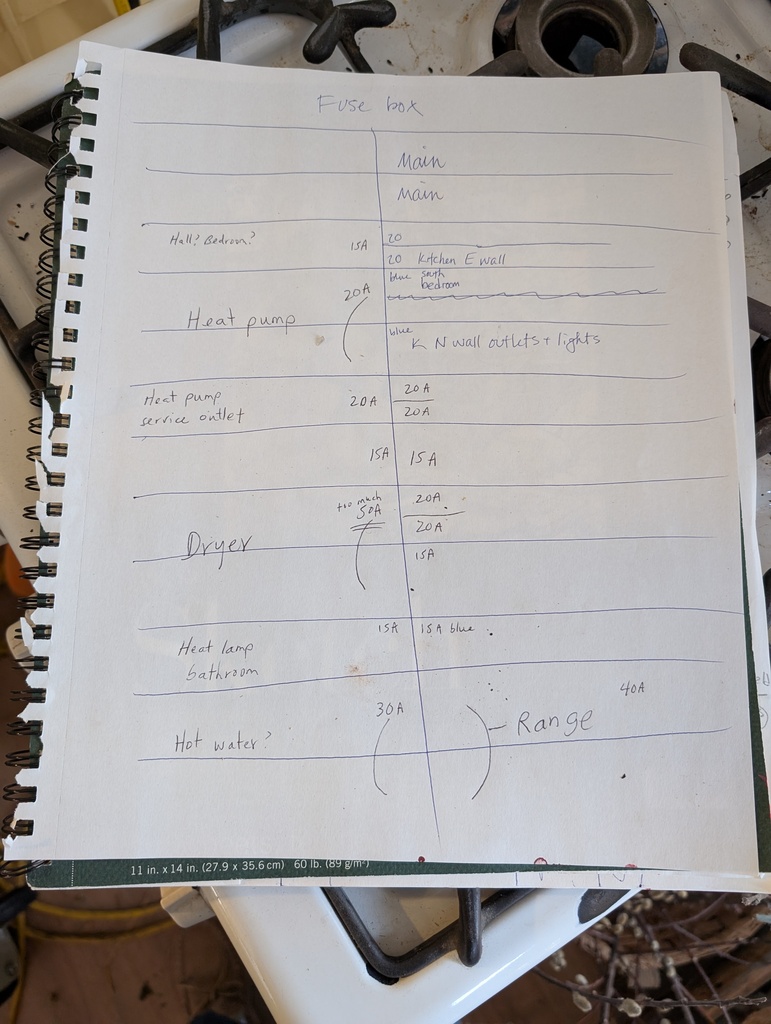 Fuse box
Main
Main
Hall? Bedroom? 15A
20
20 Kitchen E wall
blue south
bedroom
20A
Heat pump
blue
K N wall outlets + lights
Heat pump
service outlet
20A
20A
20A
15A
15A
too much
50A
20A
20A
Dryer
15A
15A
15A blue
Heat lamp
bathroom
30A
40A
Range
Hot water?
11 in. x 14 in. (27.9 x 35.6 cm) 60 lb. (89 g/m²)